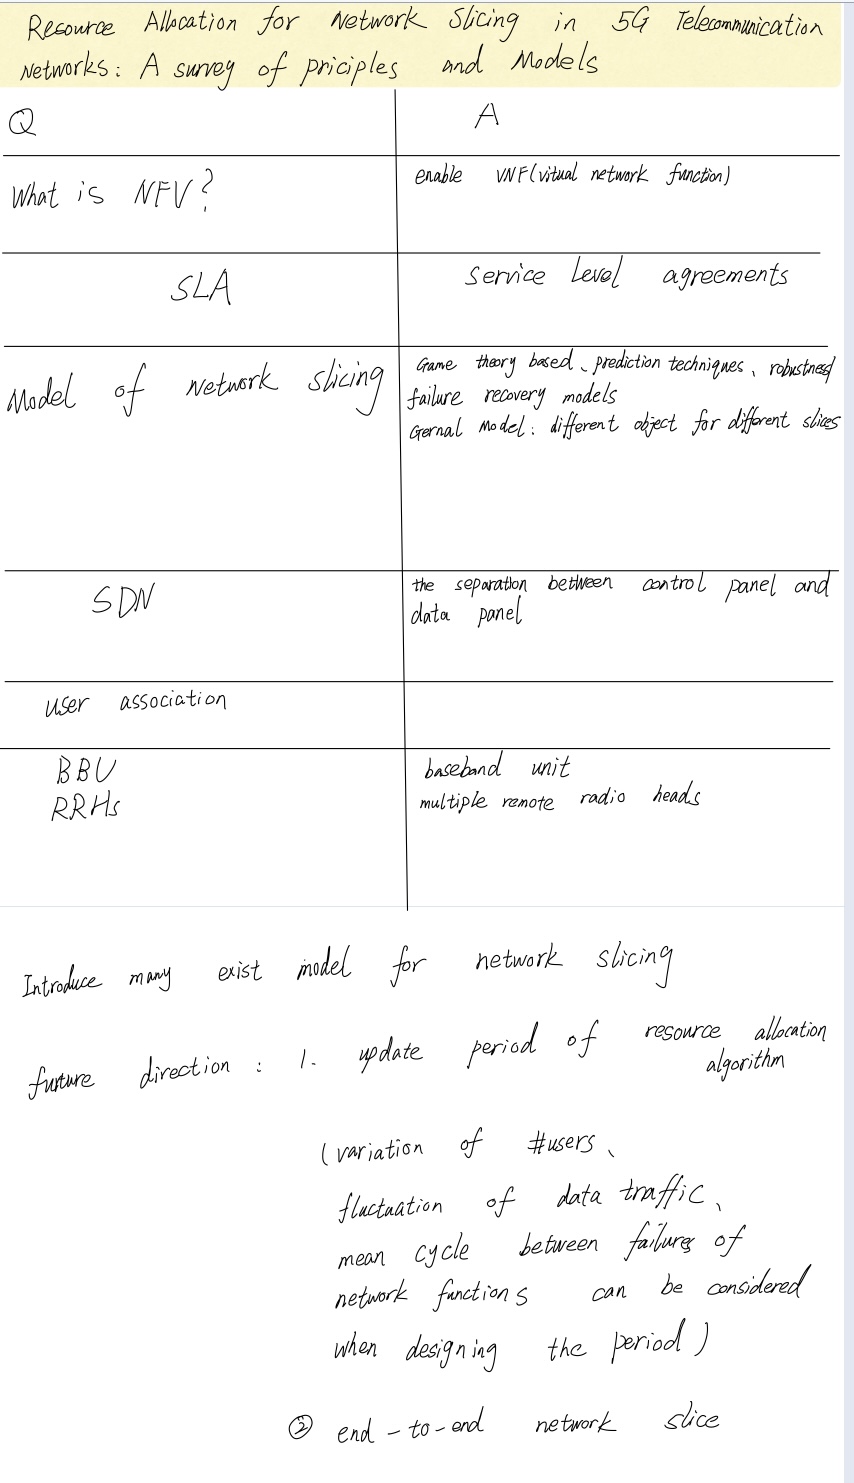 Resource Allocation for Network Slicing in 5G Telecommunication
Networks: A survey of priciples and Models
Q
A
What is NFV?
enable VNF(vitual network function)
SLA
Service Level agreements
Model of Network slicing
Game theory based、prediction techniques、robustness/
failure recovery models
Gernal Model: different object for different slices
SDN
the separation between control panel and
data panel
user association
BBU
baseband unit
RRHs
multiple remote radio heads
Introduce many exist model for network slicing
furture direction : 1. update period of resource allocation
algorithm
(variation of #users、
fluctuation of data traffic、
mean cycle between failures of
network functions can be considered
when designing the period)
② end-to-end network slice